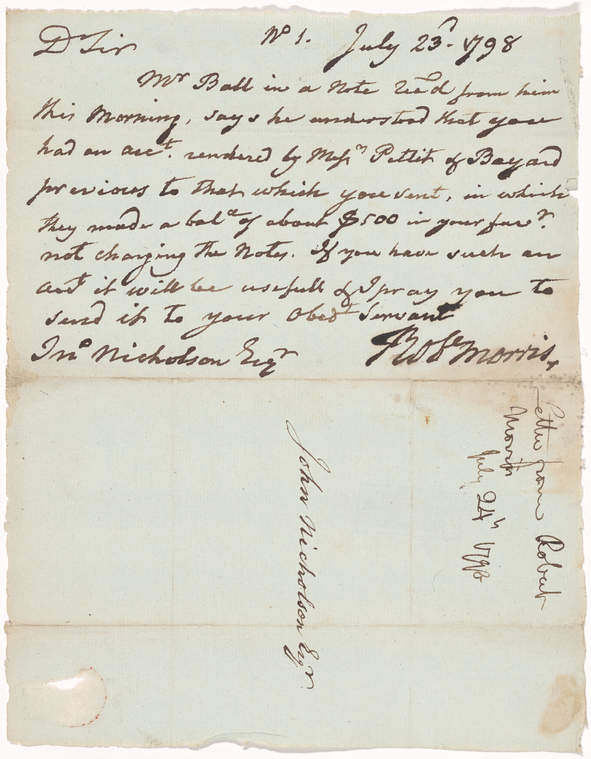 Dr Sir No 1. July 23d. 1798
Mr Ball in a Note Rec'd from him
this Morning, says he understood that you
had an acct. rendered by Messrs Pettit & Bayard
previous to that which you sent, in which
they made a balce of about $500 in your favr.
not charging the Notes. If you have such an
acct it will be usefull & I pray you to
send it to your Obedt Servant
Jno Nicholson Esqr Robt Morris
John Nicholson Esqr
Letter from Robert
Morris
July 24th 1798